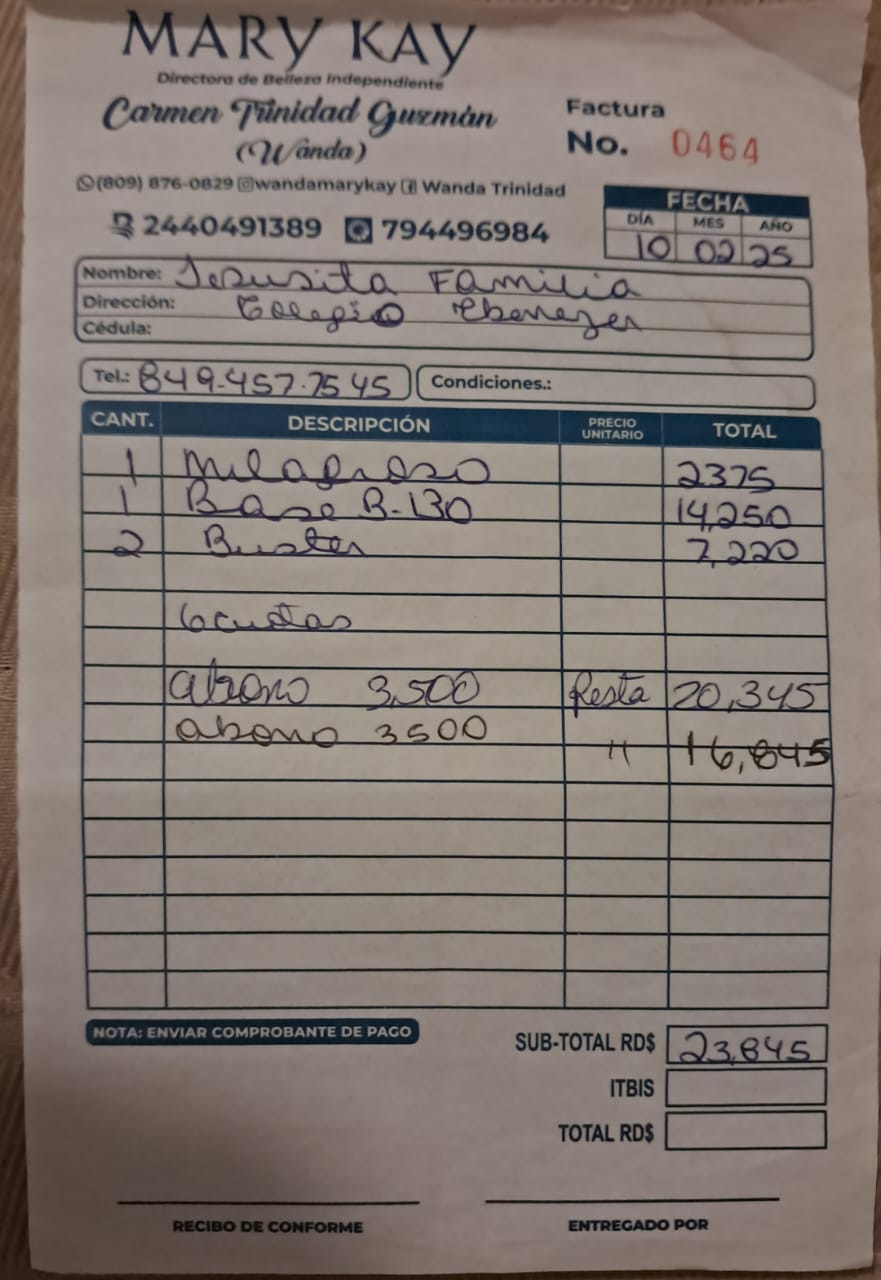 MARY KAY
Directora de Belleza Independiente
Carmen Trinidad Guzmán
(Wanda)
Factura
No. 0464
(809) 876-0829 wandamarykay Wanda Trinidad
2440491389 794496984
FECHA
DÍA MES AÑO
10 02 25
Nombre: Jesusita Familia
Dirección: Colegio Ebenezer
Cédula:
Tel.: 849-457-7545 Condiciones.:
CANT. DESCRIPCIÓN PRECIO UNITARIO TOTAL
1 Milagroso 2375
1 Base B-130 14,250
2 Buster 7,220
6 cuotas
abono 3,500 Resta 20,345
abono 3500 " 16,845
NOTA: ENVIAR COMPROBANTE DE PAGO
SUB-TOTAL RD$ 23,845
ITBIS
TOTAL RD$
RECIBO DE CONFORME ENTREGADO POR